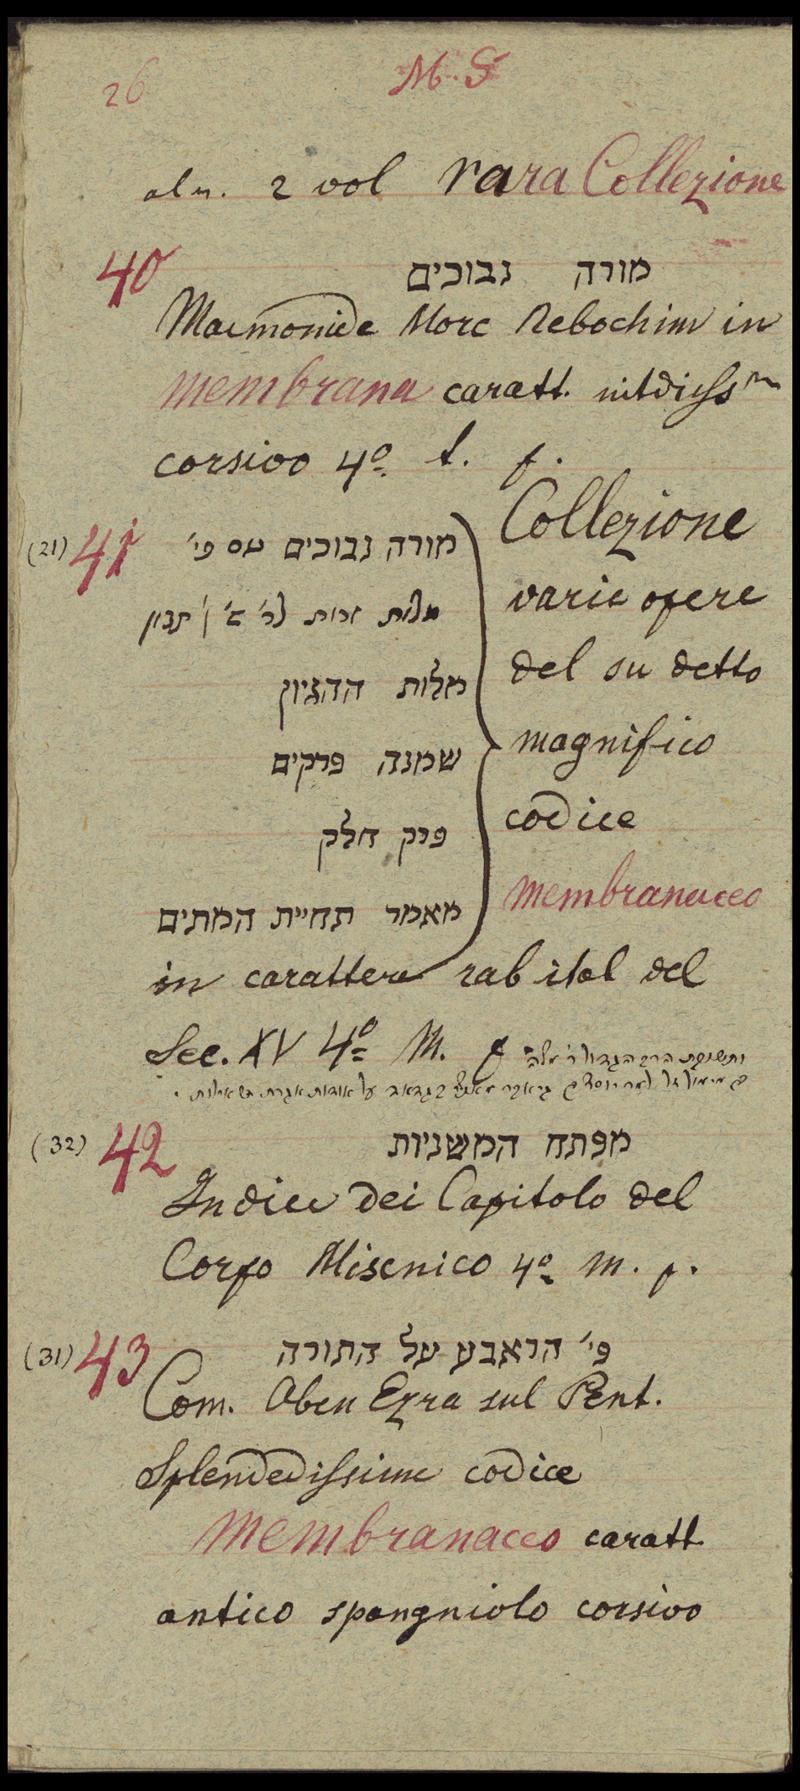 26
M. S
alm. 2 vol rara Collezione
40
מורה נבוכים
Maemonide More Nebochim in
membrana caratt. nitdiss^m
corsivo 4º t. f.
(21) 41
מורה נבוכים עם פי'
מלות זרות לר' ש' ן' תבון
מלות ההגיון
שמנה פרקים
פרק חלק
מאמר תחיית המתים
Collezione
varie opere
del su detto
magnifico
codice
membranaceo
in carattere rab ital del
Sec. XV 4º M. f
(32) 42
מפתח המשניות
Indice dei Capitolo del
Corpo Misenico 4º m. f.
(31) 43
פי' הראבע על התורה
Com. Aben Ezra sul Pent.
Splendedissimo codice
membranaceo caratt
antico spangniolo corsivo